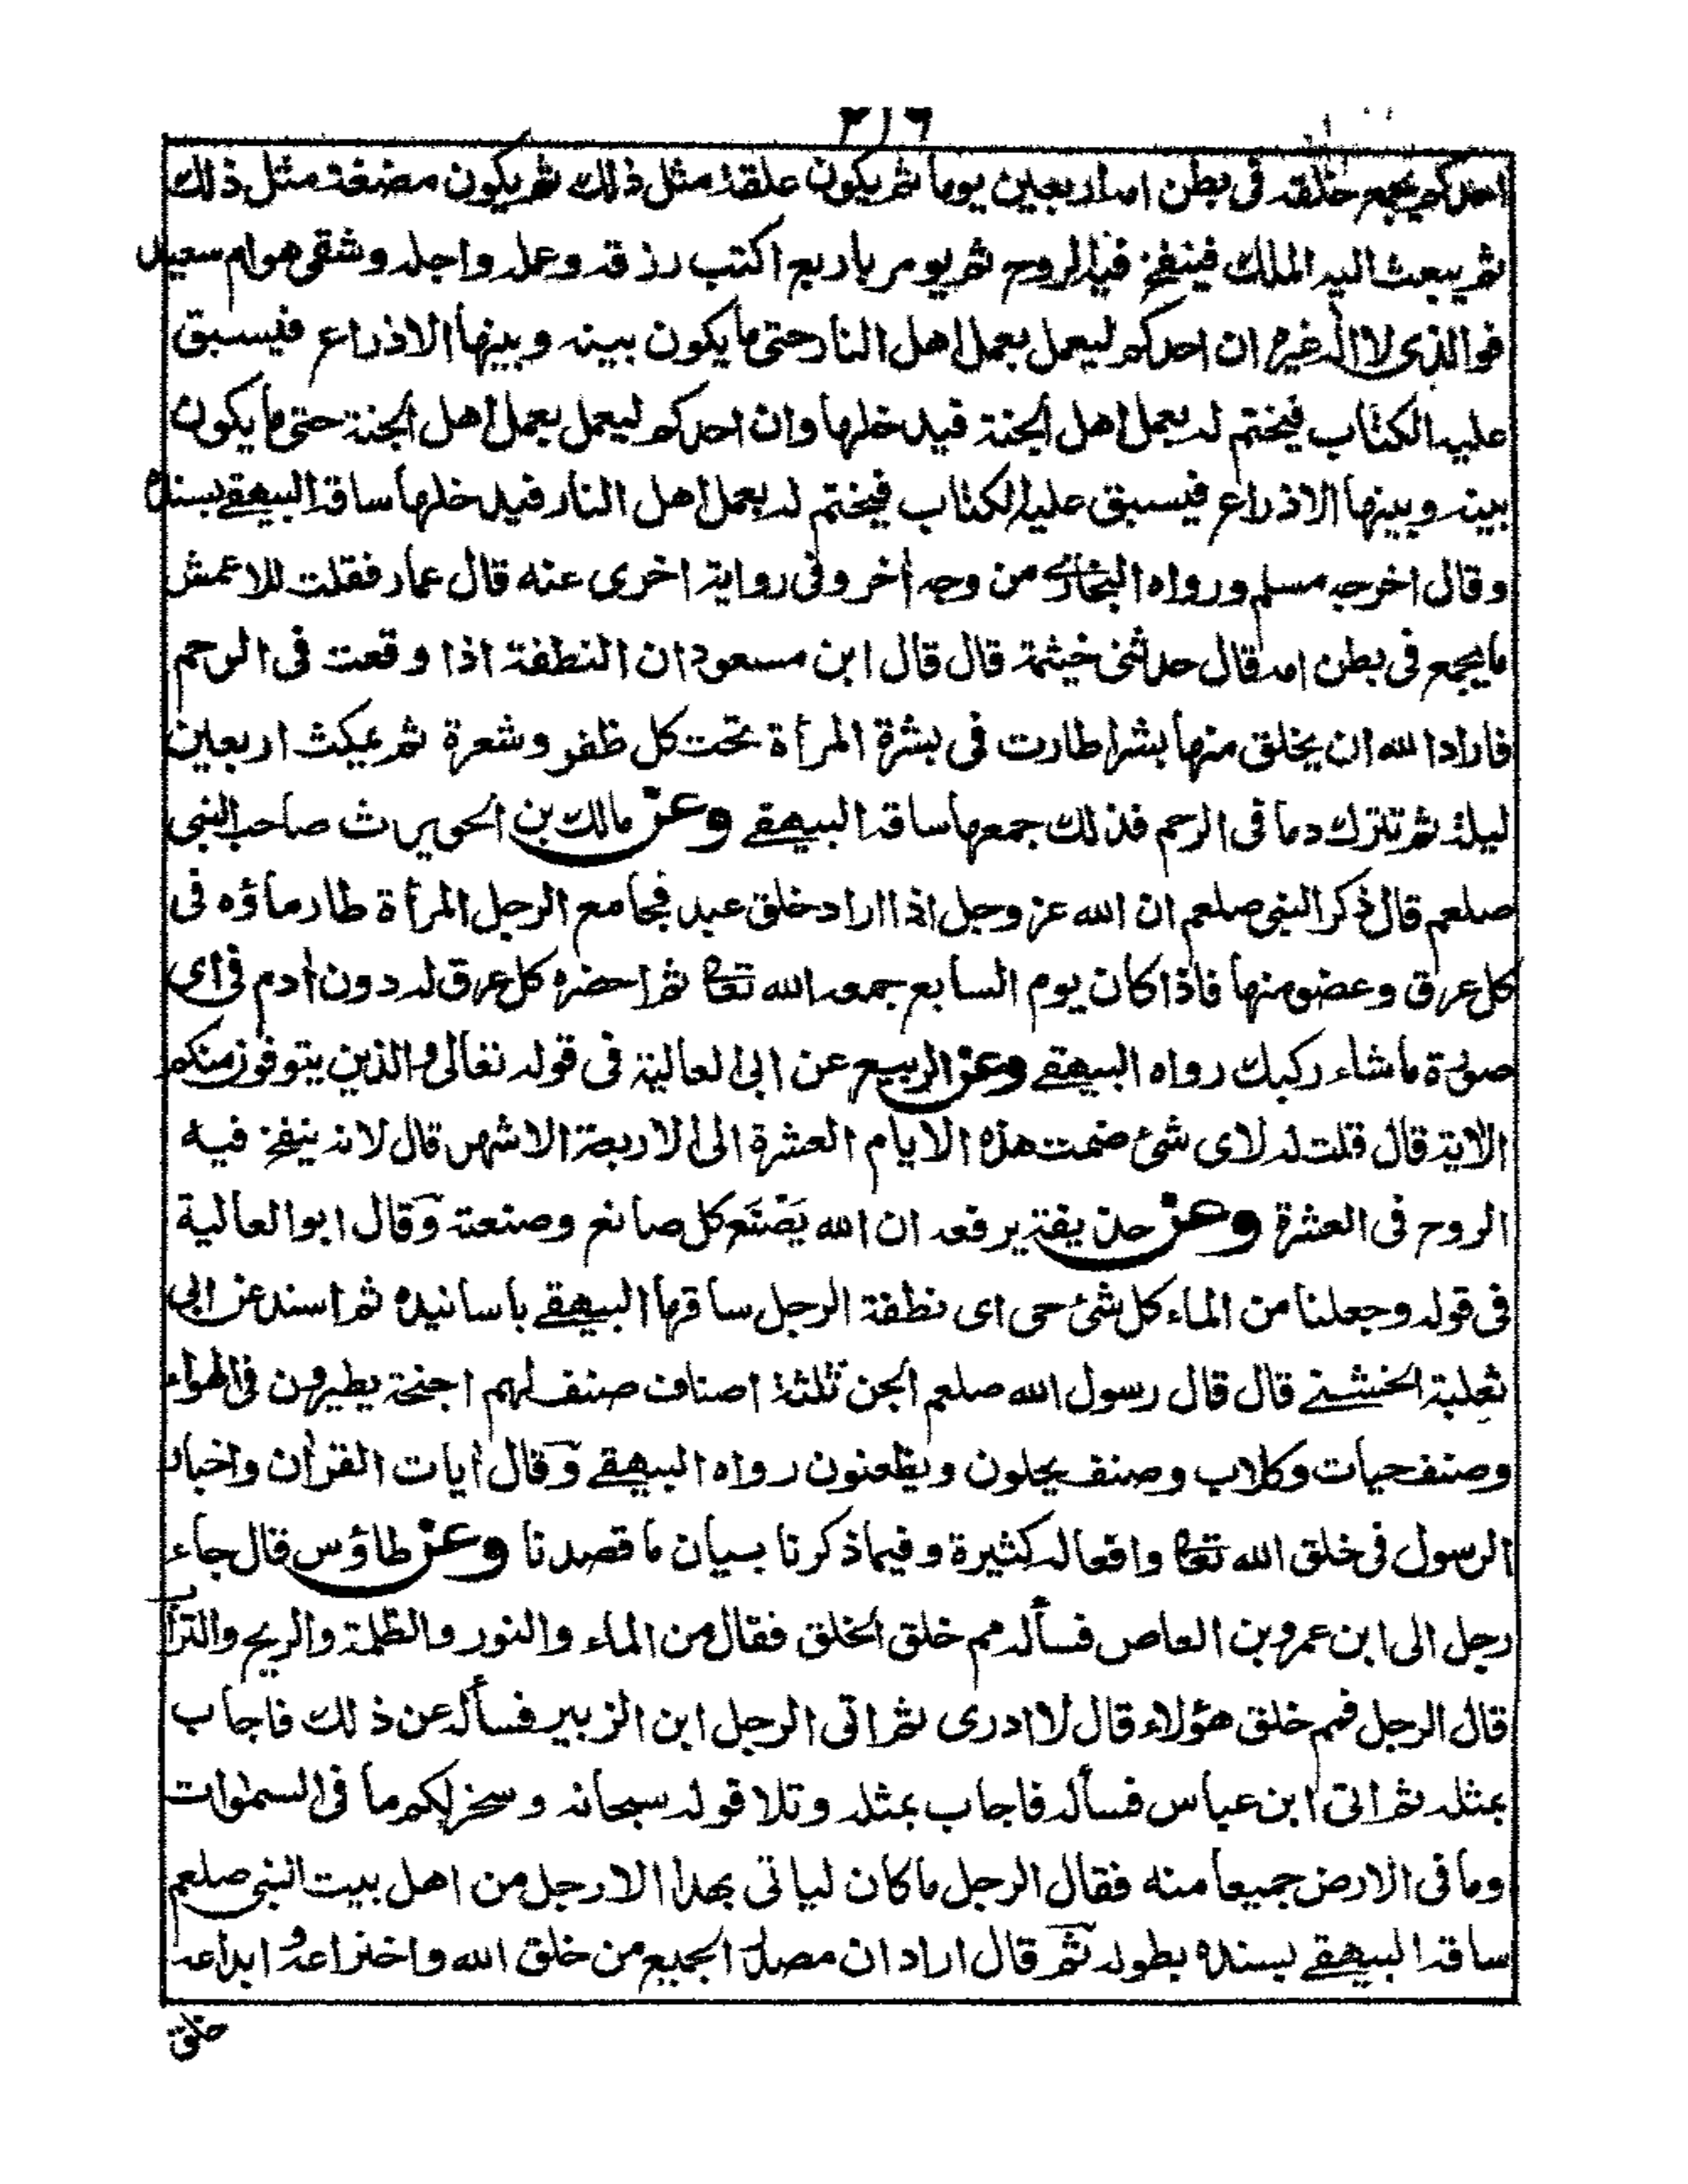 ٢١٦
احدكم يجمع خلقه فى بطن امه اربعين يوما ثم يكون علقة مثل ذلك ثم يكون مضغة مثل ذلك
ثم يبعث اليه الملك فينفخ فيه الروح ثم يومر باربع اكتب رزقه وعمله واجله وشقى هوام سعيد
فوالذى لا اله غيره ان احدكم ليعمل بعمل اهل النار حتى ما يكون بينه وبينها الا ذراع فيسبق
عليه الكتاب فيختم له بعمل اهل الجنة فيدخلها وان احدكم ليعمل بعمل اهل الجنة حتى ما يكون
بينه وبينها الا ذراع فيسبق عليه الكتاب فيختم له بعمل اهل النار فيدخلها ساقه البيهقے بسنده
وقال اخرجه مسلم ورواه البخارے من وجه أخر وفى رواية اخرى عنه قال عمار فقلت للاعمش
ما يجمع فى بطن امه قال حدثنى خيثمة قال قال ابن مسعود ان النطفة اذا وقعت فى الرحم
فاراد الله ان يخلق منها بشرا طارت فى بشرة المرأة تحت كل ظفر وشعرة ثم يمكث اربعين
ليلة ثم تترك دما فى الرحم فذلك جمعها ساقه البيهقے وعن مالك بن الحويرث صاحب النبى
صلعم قال ذكر النبى صلعم ان الله عز وجل اذا اراد خلق عبد فجامع الرجل المرأة طار ماؤه فى
كل عرق وعضو منها فاذا كان يوم السابع جمعه الله تعا ثم احضره كل عرق له دون أدم فى اى
صورة ما شاء ركبك رواه البيهقے وعن الربيع عن ابى العالية فى قوله تعالى والذين يتوفون منكم
الاية قال قلت له لاى شئ ضمت هذه الايام العشرة الى الاربعة الاشهر قال لانه ينفخ فيه
الروح فى العشرة وعن حذيفة يرفعه ان الله يَصْنَع كل صانع وصنعته وقال ابو العالية
فى قوله وجعلنا من الماء كل شئ حى اى نطفة الرجل ساقها البيهقے باسانيده ثم اسند عن ابى
ثعلبة الخشنے قال قال رسول الله صلعم الجن ثلثة اصناف صنف لهم اجنحة يطيرون فى الهواء
وصنف حيات وكلاب وصنف يحلون ويظعنون رواه البيهقے وقال أيات القرأن واخبار
الرسول فى خلق الله تعا وافعاله كثيرة وفيما ذكرنا بيان ما قصدنا وعن طاؤس قال جاء
رجل الى ابن عمرو بن العاص فسأله مم خلق الخلق فقال من الماء والنور والظلمة والريح والتراب
قال الرجل فمم خلق هؤلاء قال لا ادرى ثم اتى الرجل ابن الزبير فسأله عن ذلك فاجاب
بمثله ثم اتى ابن عباس فسأله فاجاب بمثله وتلا قوله سبحانه وسخر لكم ما فى السموات
وما فى الارض جميعا منه فقال الرجل ما كان لياتى بهذا الا رجل من اهل بيت النبى صلعم
ساقه البيهقے بسنده بطوله ثم قال اراد ان مصدر الجميع من خلق الله واختراعه وابداعه
خلق